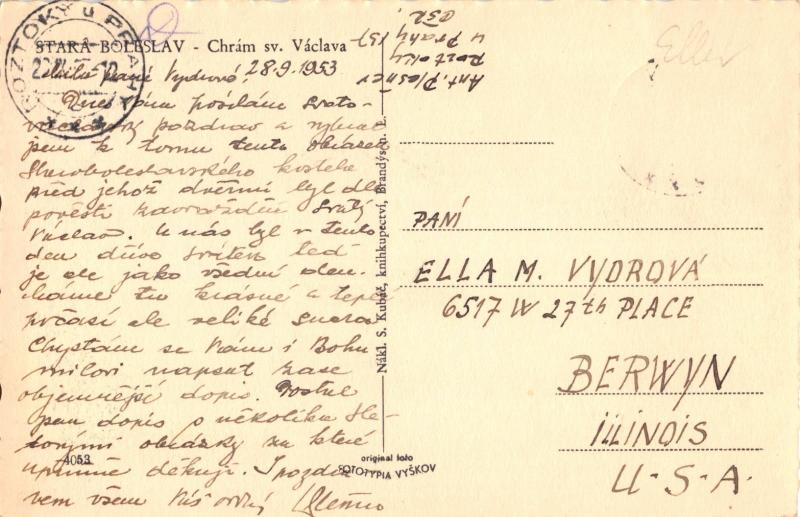 STARÁ BOLESLAV - Chrám sv. Václava
ROZTOKY u PRAHY
Milá paní Vydrová, 28.9.1953
Dnes Vám posílám Svato-
václavský pozdrav a vybral
jsem k tomu tento obrázek
Staroboleslavského kostela
před jehož dveřmi byl dle
pověsti zavražděn Svatý
Václav. U nás byl v tento
den dřív svátek teď
je ale jako všední den.
Máme tu krásné a teplé
počasí ale veliké sucho.
Chystám se Vám i Bohu
milovi napsat zase
objemnější dopis. Dostal
jsem dopis s několika
obrázky za které
upřímně děkuji. S pozdra
vem všem Váš
4053
Nákl. S. Kubáč, knihkupectví, Brandýs n. L.
original foto
FOTOTYPIA VYŠKOV
Ant. Plešner
Roztoky
u Prahy 157
ČSR.
Ella
PANÍ
ELLA M. VYDROVÁ
6517 W 27th PLACE
BERWYN
ILLINOIS
U-S-A.